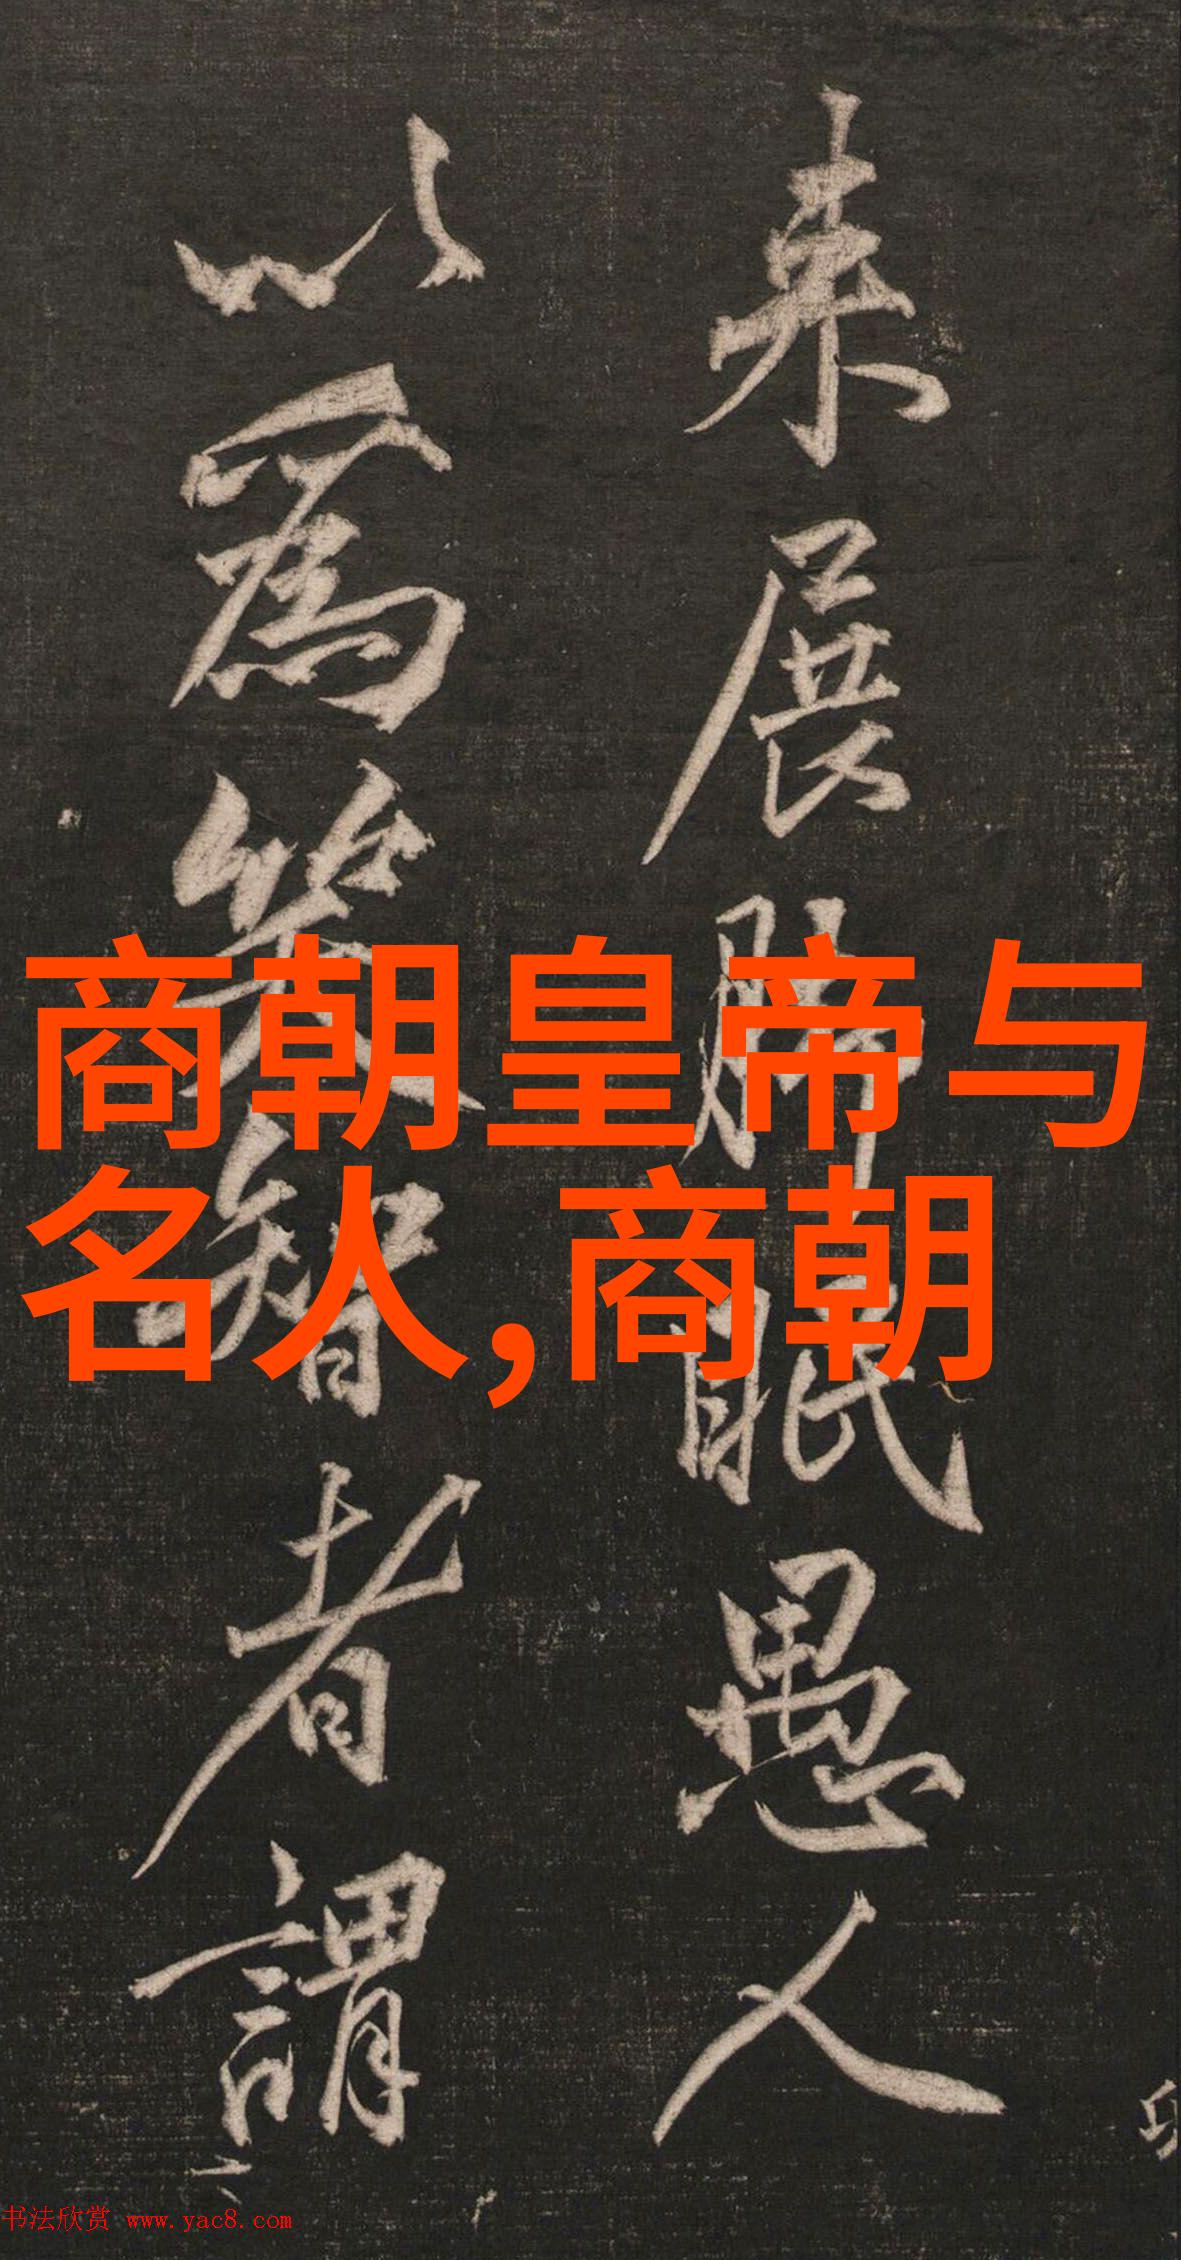 来展眠愚人
以為笑智者謂
商朝皇帝与
名人,商朝
书法欣赏 www.yac8.com